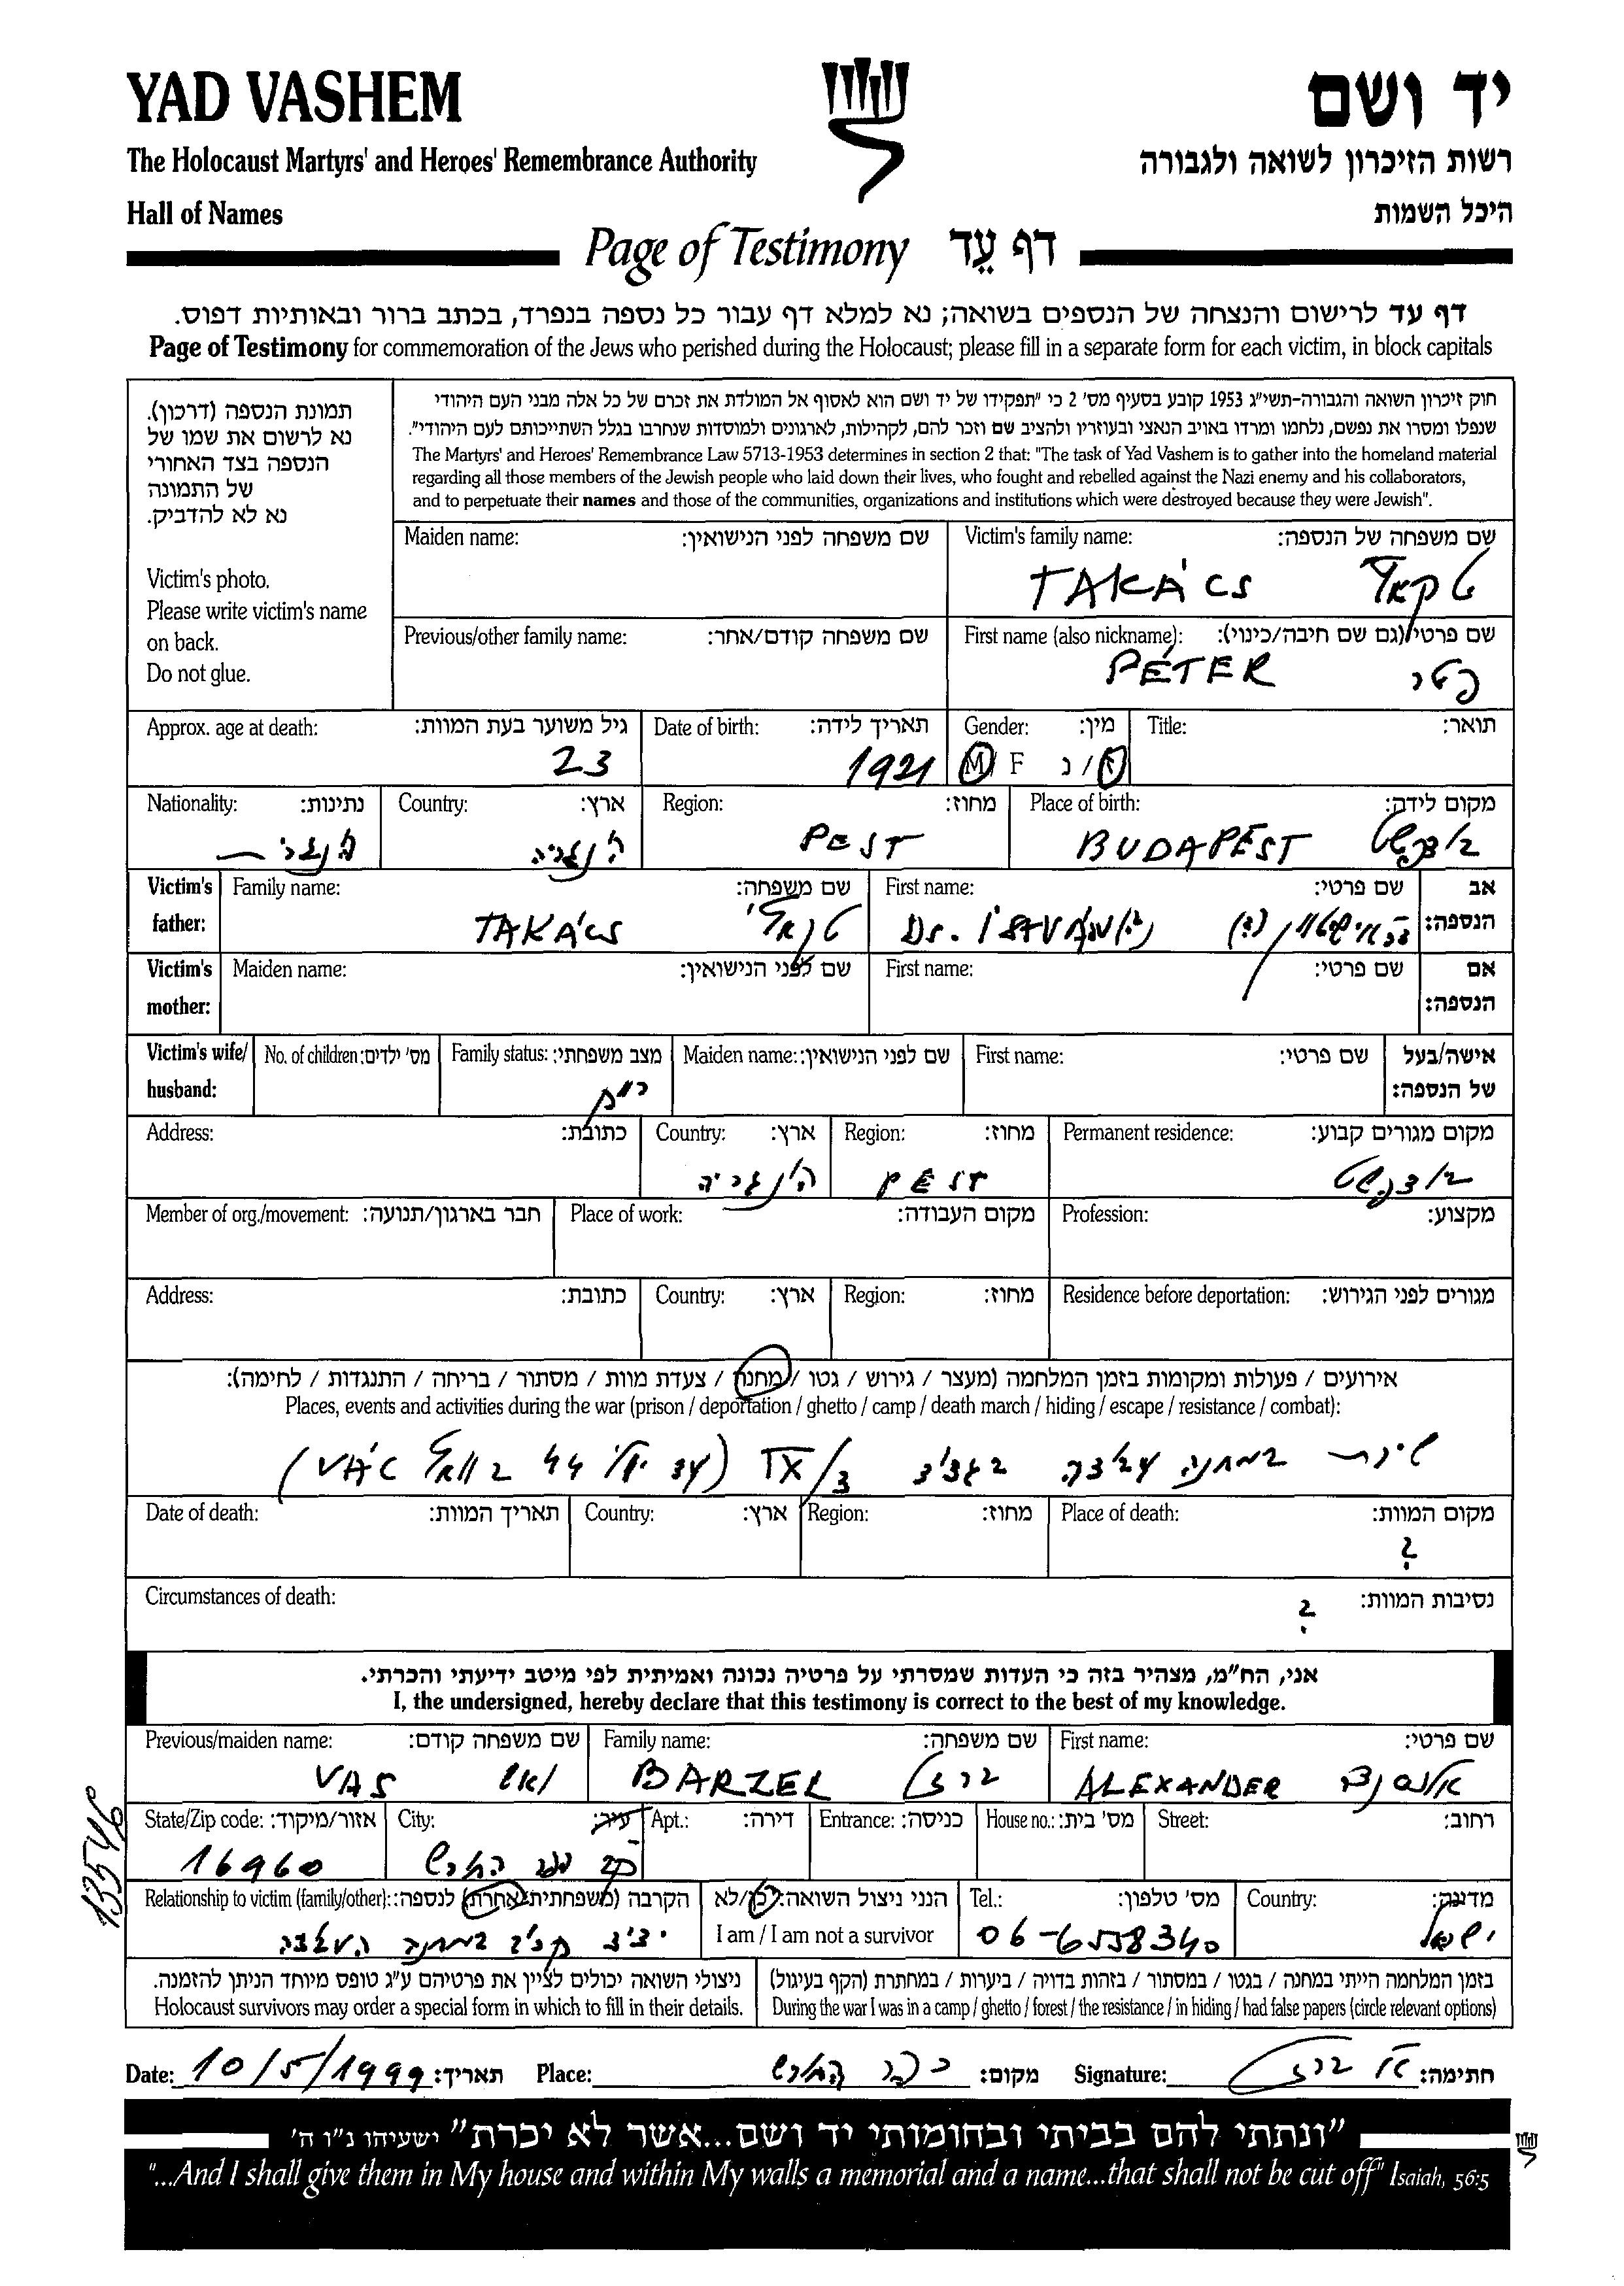 YAD VASHEM
יד ושם
The Holocaust Martyrs' and Heroes' Remembrance Authority
רשות הזיכרון לשואה ולגבורה
Hall of Names
היכל השמות
Page of Testimony דף עֵד
דף עד לרישום והנצחה של הנספים בשואה; נא למלא דף עבור כל נספה בנפרד, בכתב ברור ובאותיות דפוס.
Page of Testimony for commemoration of the Jews who perished during the Holocaust; please fill in a separate form for each victim, in block capitals
תמונת הנספה (דרכון).
נא לרשום את שמו של
הנספה בצד האחורי
של התמונה
נא לא להדביק.
Victim's photo.
Please write victim's name
on back.
Do not glue.
חוק זיכרון השואה והגבורה-תשי"ג 1953 קובע בסעיף מס' 2 כי "תפקידו של יד ושם הוא לאסוף אל המולדת את זכרם של כל אלה מבני העם היהודי
שנפלו ומסרו את נפשם, נלחמו ומרדו באויב הנאצי ובעוזריו ולהציב שם וזכר להם, לקהילות, לארגונים ולמוסדות שנחרבו בגלל השתייכותם לעם היהודי".
The Martyrs' and Heroes' Remembrance Law 5713-1953 determines in section 2 that: "The task of Yad Vashem is to gather into the homeland material
regarding all those members of the Jewish people who laid down their lives, who fought and rebelled against the Nazi enemy and his collaborators,
and to perpetuate their names and those of the communities, organizations and institutions which were destroyed because they were Jewish".
Maiden name: שם משפחה לפני הנישואין:
Victim's family name: שם משפחה של הנספה:
TAKÁCS
Previous/other family name: שם משפחה קודם/אחר:
First name (also nickname): שם פרטי (גם שם חיבה/כינוי):
PÉTER פטר
Approx. age at death: גיל משוער בעת המוות:
23
Date of birth: תאריך לידה:
1921
Gender: מין:
M/ F ז/נ
Title: תואר:
Nationality: נתינות:
Country: ארץ:
הונגריה
Region: מחוז:
PEST
Place of birth: מקום לידה:
BUDAPEST בודפשט
Victim's father: Family name: שם משפחה:
TAKÁCS
First name: שם פרטי: אב הנספה:
Dr. ISTVÁN
Victim's mother: Maiden name: שם לפני הנישואין:
First name: שם פרטי: אם הנספה:
Victim's wife/ husband: No. of children: מס' ילדים:
Family status: מצב משפחתי:
Maiden name: שם לפני הנישואין:
First name: שם פרטי: אישה/בעל של הנספה:
Address: כתובת:
Country: ארץ:
הונגריה
Region: מחוז:
PEST
Permanent residence: מקום מגורים קבוע:
בודפשט
Member of org./movement: חבר בארגון/תנועה:
Place of work: מקום העבודה:
Profession: מקצוע:
Address: כתובת:
Country: ארץ:
Region: מחוז:
Residence before deportation: מגורים לפני הגירוש:
אירועים / פעולות ומקומות בזמן המלחמה (מעצר / גירוש / גטו / מחנה / צעדת מוות / מסתור / בריחה / התנגדות / לחימה):
Places, events and activities during the war (prison / deportation / ghetto / camp / death march / hiding / escape / resistance / combat):
שירות במחנה עבודה בגדוד IX/2 (עד יולי 44 בואץ VÁC)
Date of death: תאריך המוות:
Country: ארץ:
Region: מחוז:
Place of death: מקום המוות:
?
Circumstances of death: נסיבות המוות:
?
אני, הח"מ, מצהיר בזה כי העדות שמסרתי על פרטיה נכונה ואמיתית לפי מיטב ידיעתי והכרתי.
I, the undersigned, hereby declare that this testimony is correct to the best of my knowledge.
Previous/maiden name: שם משפחה קודם:
VAS ואש
Family name: שם משפחה:
BARZEL ברזל
First name: שם פרטי:
ALEXANDER אלכסנדר
State/Zip code: אזור/מיקוד:
16960
City: עיר:
כפר החורש
Apt.: דירה:
Entrance: כניסה:
House no.: מס' בית:
Street: רחוב:
Relationship to victim (family/other): הקרבה (משפחתית/אחרת) לנספה:
במחנה העבודה
הנני ניצול השואה: כן/לא
I am / I am not a survivor
Tel.: מס' טלפון:
06-6558340
Country: מדינה:
ישראל
ניצולי השואה יכולים לציין את פרטיהם ע"ג טופס מיוחד הניתן להזמנה.
Holocaust survivors may order a special form in which to fill in their details.
בזמן המלחמה הייתי במחנה / בגטו / במסתור / בזהות בדויה / ביערות / במחתרת (הקף בעיגול)
During the war I was in a camp / ghetto / forest / the resistance / in hiding / had false papers (circle relevant options)
Date: 10/5/1999 תאריך:
Place: כפר החורש מקום:
Signature: ברזל חתימה:
"ונתתי להם בביתי ובחומותי יד ושם...אשר לא יכרת" ישעיהו נ"ו ה'
"...And I shall give them in My house and within My walls a memorial and a name...that shall not be cut off" Isaiah, 56:5